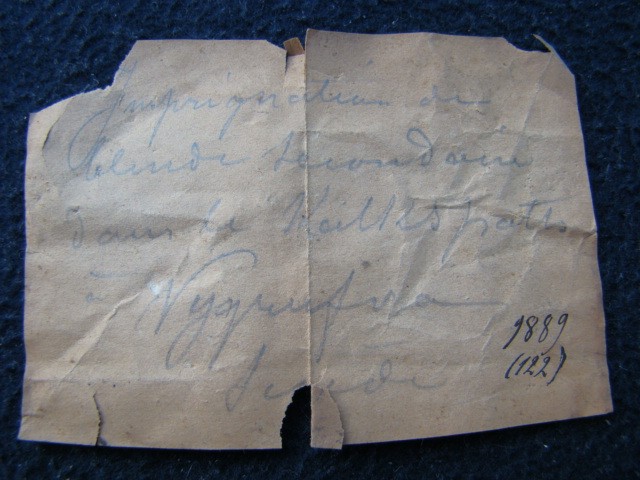 Imprégnation de
blende secondaire
dans le Kalkspath
à Nygrufva
Suède
1889
(122)